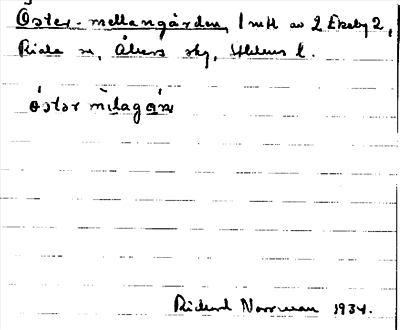 Öster-mellangården, 1 mtl av 2 Ekeby 2,
Riala sn, Åkers skg, Sthlms l.
östər milagɑ́ṇ
Rickard Norrman 1934.